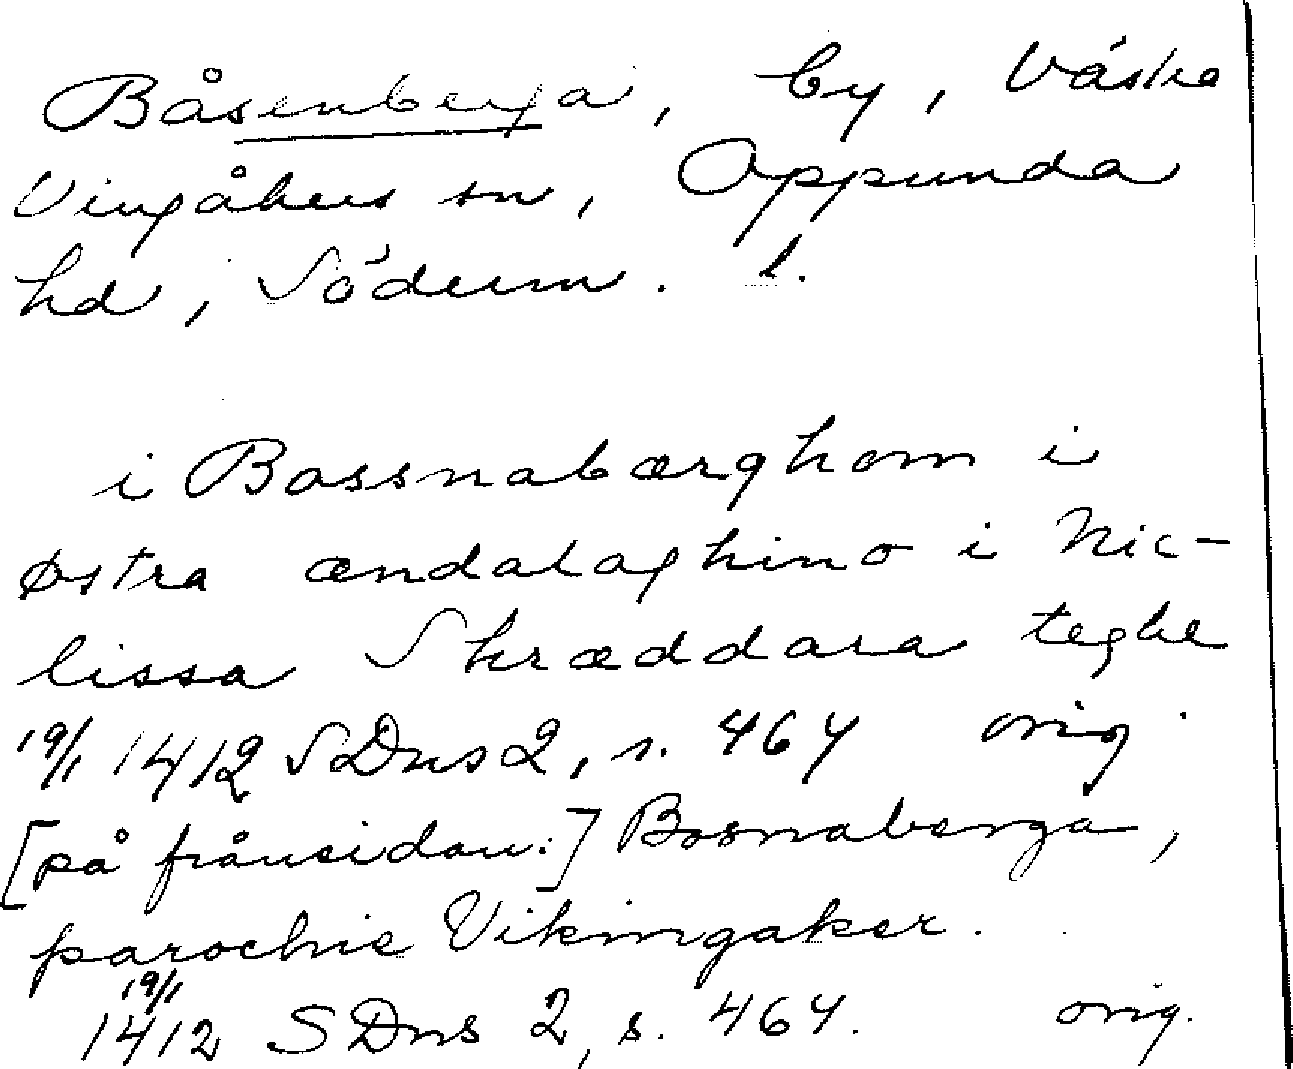 Båsenberga, by, Västra
Vingåkers sn, Oppunda
hd, Söderm. l.
i Bossnabærghom i
østra ændalaghino i Nic-
lissa Skræddara teghe
19/1 1412 SDns 2, s. 464 orig.
[på frånsidan:] Bosnaberga,
parochie Vikingaker.
19/1
1412 SDns 2, s. 464. orig.